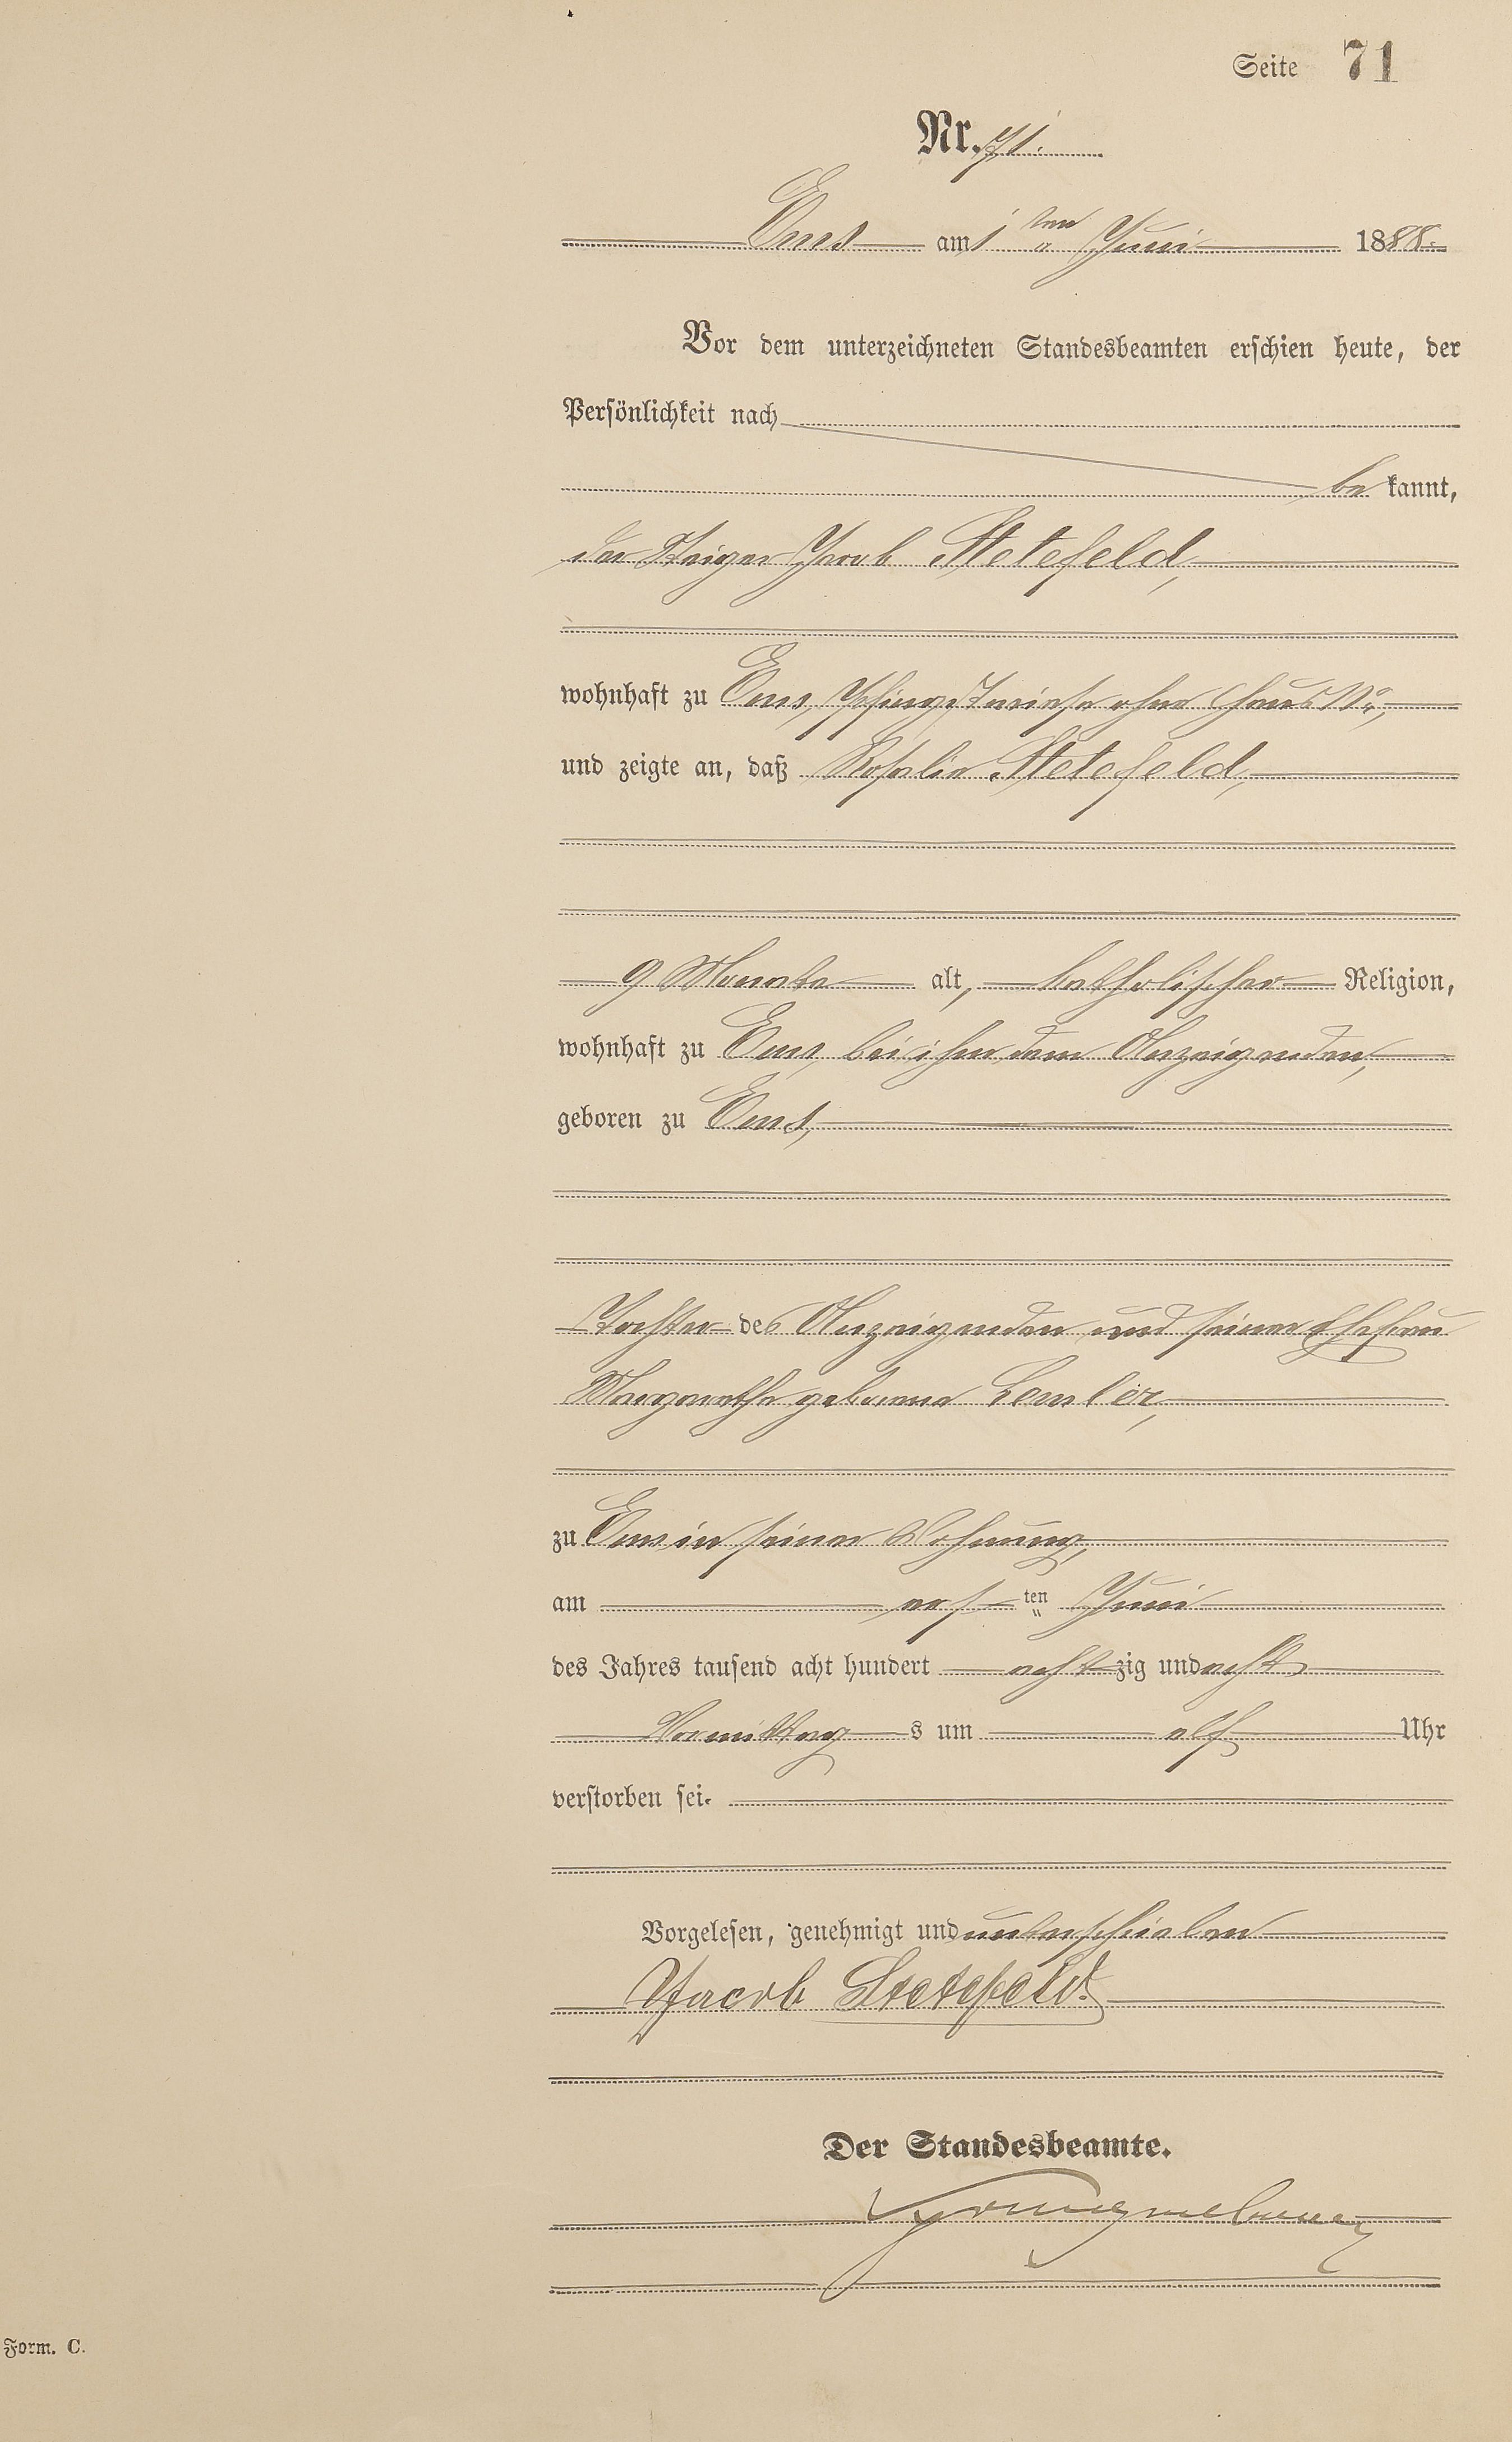 Seite 71
Nr. 71.
Ems am 1ten Juni 1888.
Vor dem unterzeichneten Standesbeamten erschien heute, der
Persönlichkeit nach
bekannt,
der Steiger Jacob Stetefeld,
wohnhaft zu Ems, Pfingstwiese ohne Haus No,
und zeigte an, daß Rosalie Stetefeld,
9 Monate alt, katholischer Religion,
wohnhaft zu Ems, bei ihm dem Anzeigenden,
geboren zu Ems,
Tochter des Anzeigenden und seiner Ehefrau
Margarethe geborene Lemler,
zu Ems in seiner Wohnung,
am ersten Juni
des Jahres tausend acht hundert achtzig und acht
Vormittags um elf Uhr
verstorben sei.
Vorgelesen, genehmigt und unterschrieben
Jacob Stetefeld
Der Standesbeamte.
Form. C.